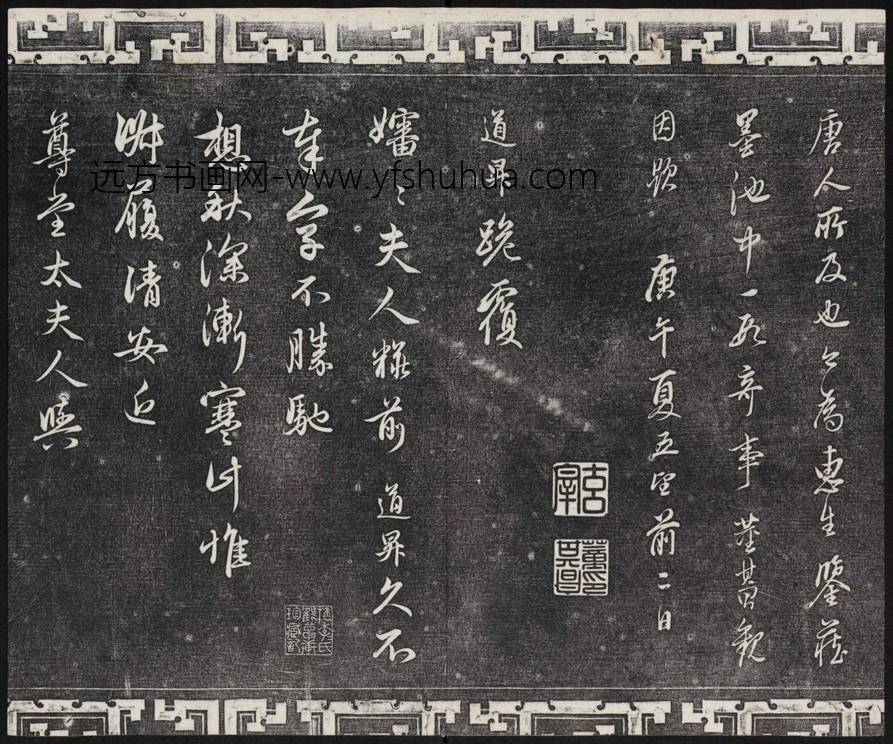 唐人所及也今為惠生鑒藏
墨池中一段奇事 董其昌觀
因題 庚午夏五望前二日
道昇跪覆
嬸嬸夫人粧前 道昇久不
奉字不勝馳
想秋深漸寒計惟
淑履清安近
尊堂太夫人與
董其昌印
远方书画网-www.yfshuhua.com